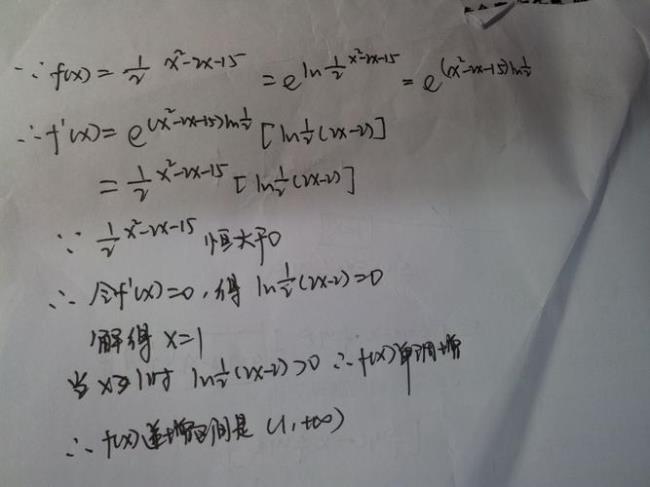 ∵ f(x) = 1/2^(x²-2x-15) = e^(ln 1/2^(x²-2x-15)) = e^((x²-2x-15)ln 1/2)
∴ f'(x) = e^((x²-2x-15)ln 1/2) [ln 1/2 (2x-2)]
= 1/2^(x²-2x-15) [ln 1/2 (2x-2)]
∵ 1/2^(x²-2x-15) 恒大于0
∴ 令f'(x)=0,得 ln 1/2 (2x-2)=0
解得 x=1
当 x≥1时 ln 1/2 (2x-2)>0 ∴ f(x)单调增
∴ f(x)递增区间是 (1,+∞)